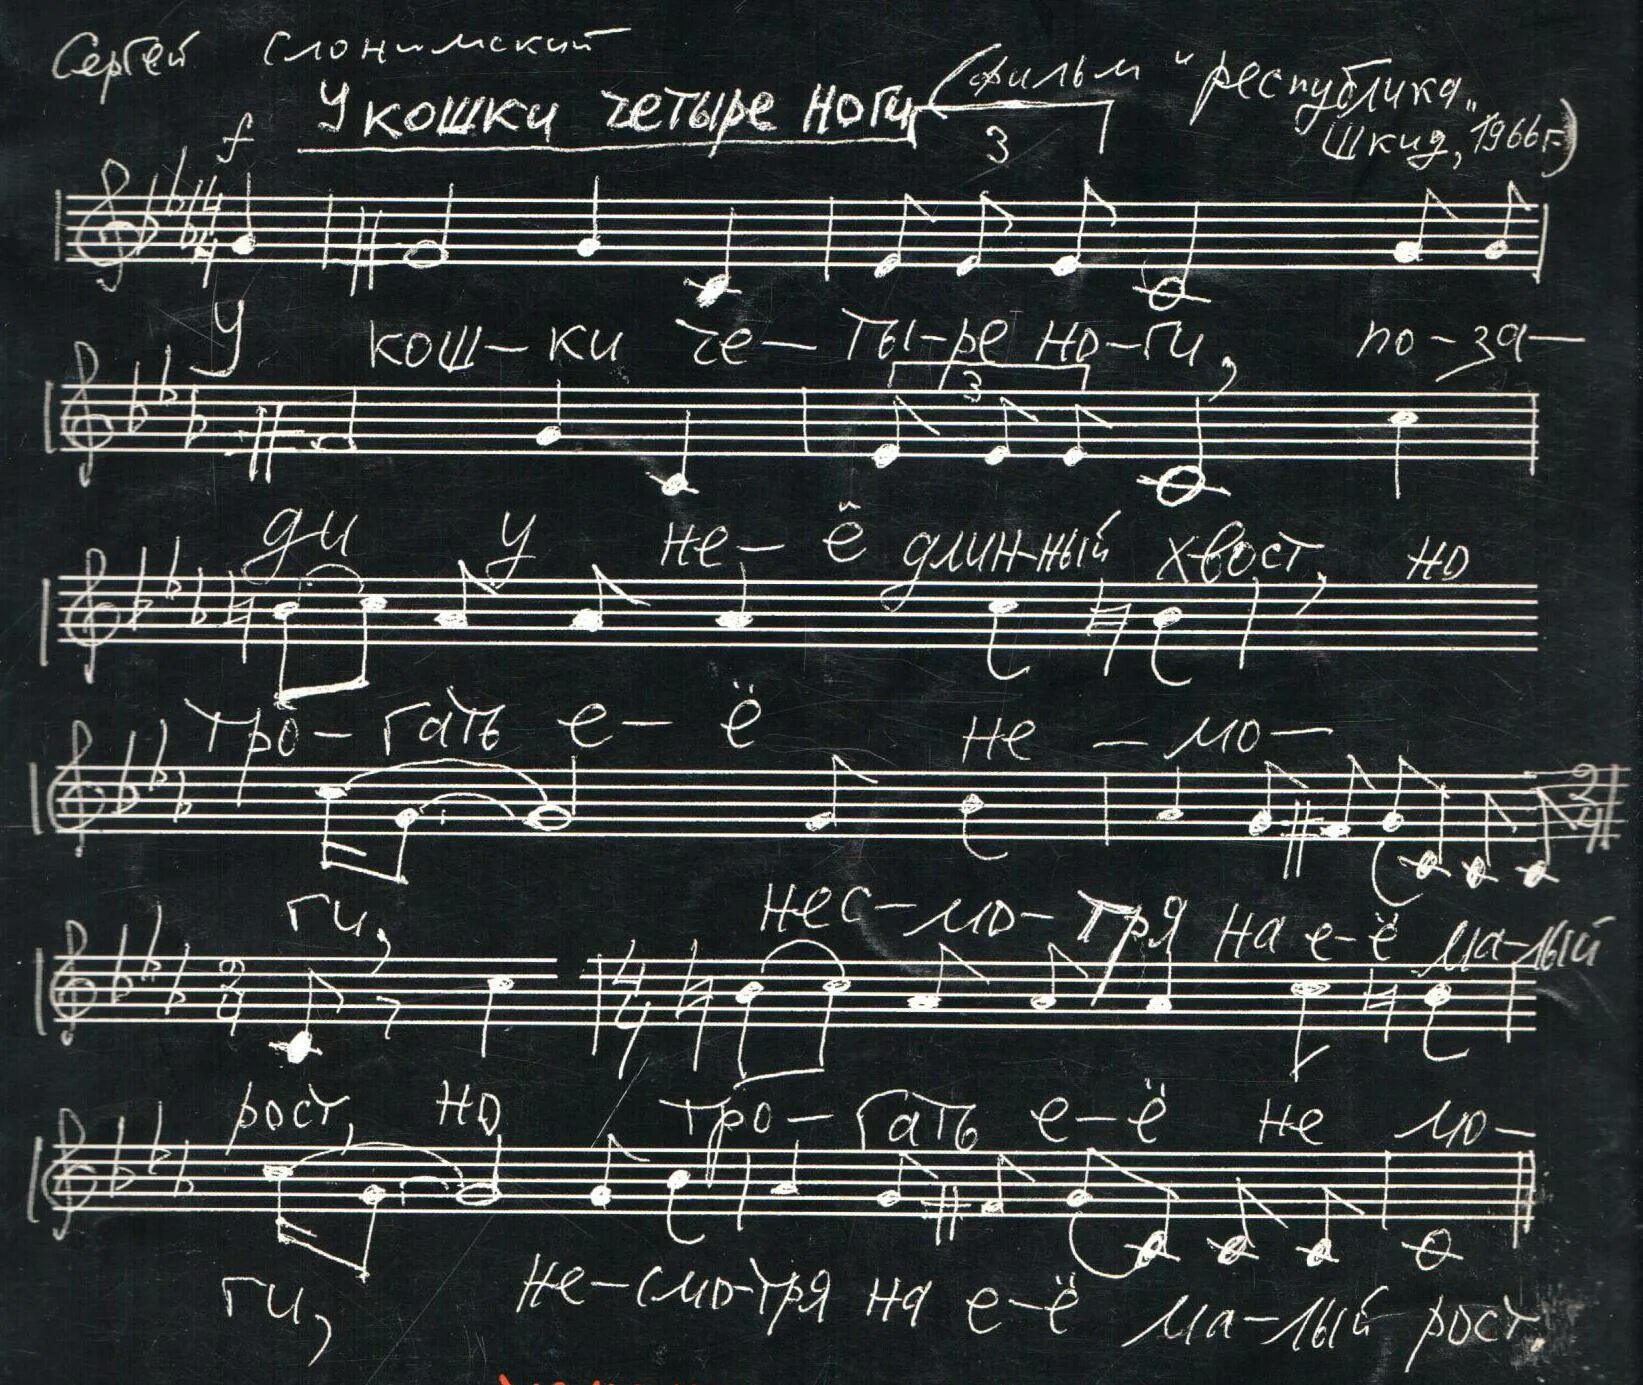 Сергей Слонимский
У кошки четыре ноги (фильм "республика
Шкид," 1966г.)
f
3
У кош-ки че-ты-ре но-ги, по-за-
3
ди у не-ё длин-ный хвост, но
тро-гать е-ё не-мо-
ги, нес-мо-тря на е-ё ма-лый
рост, но тро-гать е-ё не мо-
ги, не-смо-тря на е-ё ма-лый рост.